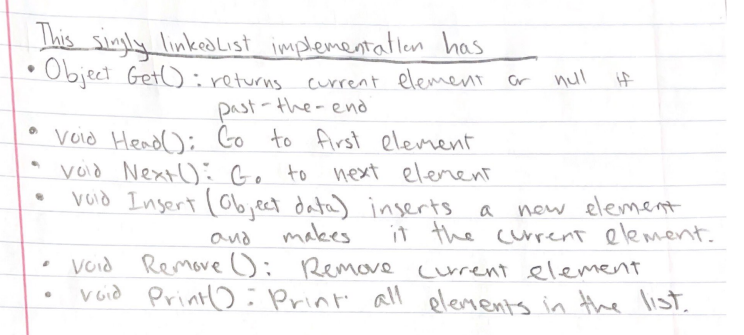 This singly linkedList implementation has
• Object Get(): returns current element or null if
past-the-end
• void Head(): Go to first element
• void Next(): Go to next element
• void Insert (Object data) inserts a new element
and makes it the current element.
• void Remove(): Remove current element
• void Print(): Print all elements in the list.